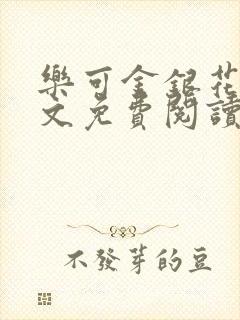 樂可金銀花
文免費閱讀
不發芽的豆